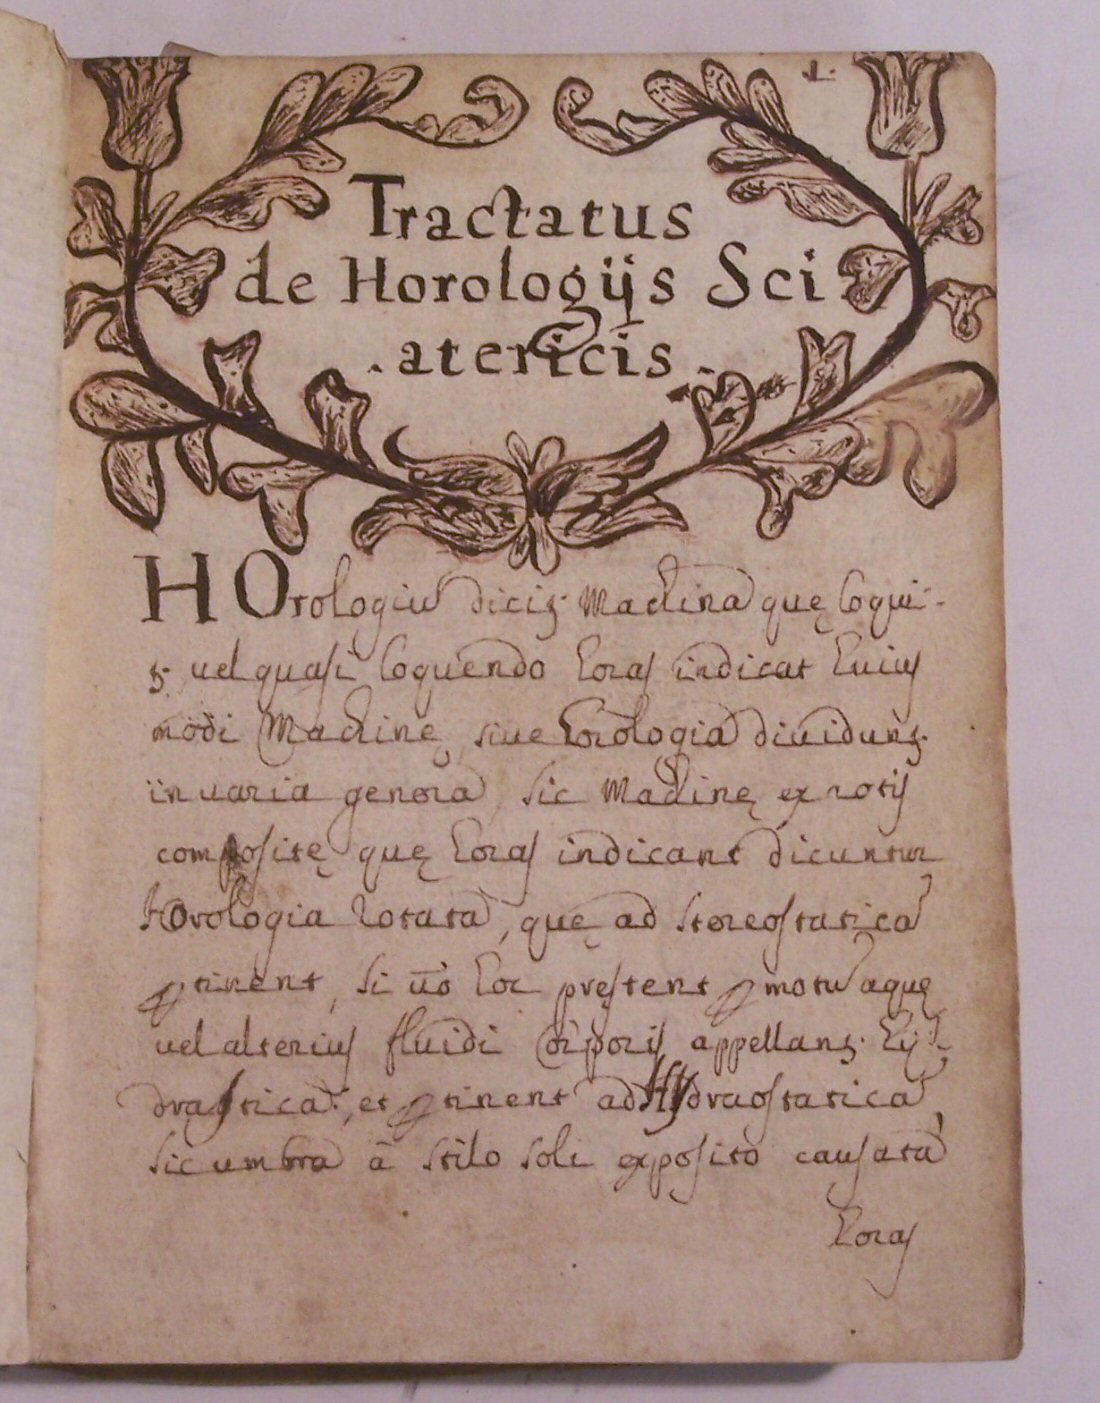 1.
Tractatus
de Horologijs Sci
. atericis .
HOrologiũ dicitꝫ Machina quę loqui-
tꝫ vel quasi loquendo horas indicat huius
modi Machinę, siue horologia diuidunꝫ
in uaria genera, sic Machinę ex rotis
compositę quę horas indicant dicuntur
Horologia rotata, quę ad stereostatica
ꝑtinent, si ũo hoc pręstent ꝑ motũ aquę
vel alterius fluidi Corporis appellanꝫ Hy-
drastica, et ꝑtinent ad Hydraostatica,
sic umbra à stilo soli exposito causata
horas